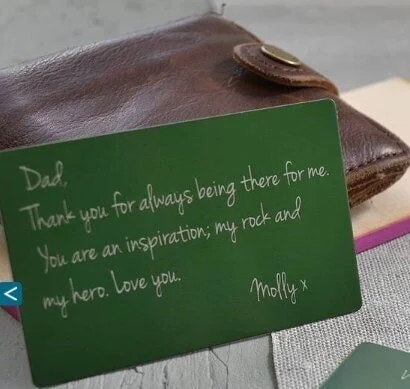 Dad,
Thank you for always being there for me.
You are an inspiration; my rock and
my hero. Love you.
Molly x